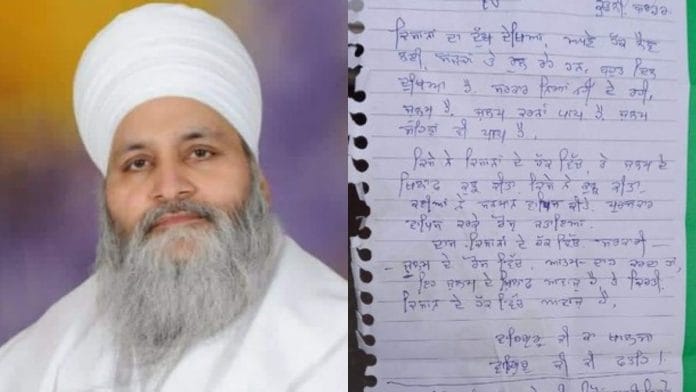 ਕੁੰਡਲੀ ਬਾਰਡਰ
ਕਿਸਾਨਾਂ ਦਾ ਦੁੱਖ ਦੇਖਿਆ, ਆਪਣੇ ਹੱਕ ਲੈਣ
ਲਈ, ਸੜਕਾਂ ਤੇ ਰੁਲ ਰਹੇ ਹਨ, ਬਹੁਤ ਦਿਲ
ਦੁਖਿਆ ਹੈ. ਸਰਕਾਰ ਨਿਆਂ ਨਹੀਂ ਦੇ ਰਹੀ,
ਜੁਲਮ ਹੈ. ਜੁਲਮ ਕਰਨਾ ਪਾਪ ਹੈ. ਜੁਲਮ
ਸਹਿਣਾ ਵੀ ਪਾਪ ਹੈ.
ਕਿਸੇ ਨੇ ਕਿਸਾਨਾਂ ਦੇ ਹੱਕ ਵਿੱਚ, ਤੇ ਜੁਲਮ ਦੇ
ਖਿਲਾਫ ਕੁਝ ਕੀਤਾ ਕਿਸੇ ਨੇ ਕੁਝ ਕੀਤਾ.
ਕਈਆਂ ਨੇ ਸਨਮਾਨ ਵਾਪਿਸ ਕੀਤੇ. ਪੁਰਸਕਾਰ
ਵਾਪਿਸ ਕਰਕੇ ਰੋਸ ਜਤਾਇਆ.
ਦਾਸ ਕਿਸਾਨਾਂ ਦੇ ਹੱਕ ਵਿੱਚ ਸਰਕਾਰੀ
ਜੁਲਮ ਦੇ ਰੋਸ ਵਿੱਚ, ਆਤਮ-ਦਾਹ ਕਰਦਾ ਹਾਂ,
ਇਹ ਜੁਲਮ ਦੇ ਖਿਲਾਫ ਆਵਾਜ਼ ਹੈ, ਤੇ ਕਿਰਤੀ
ਕਿਸਾਨ ਦੇ ਹੱਕ ਵਿੱਚ ਆਵਾਜ਼ ਹੈ.
ਵਾਹਿਗੁਰੂ ਜੀ ਕਾ ਖਾਲਸਾ
ਵਾਹਿਗੁਰੂ ਜੀ ਕੀ ਫਤਹਿ।